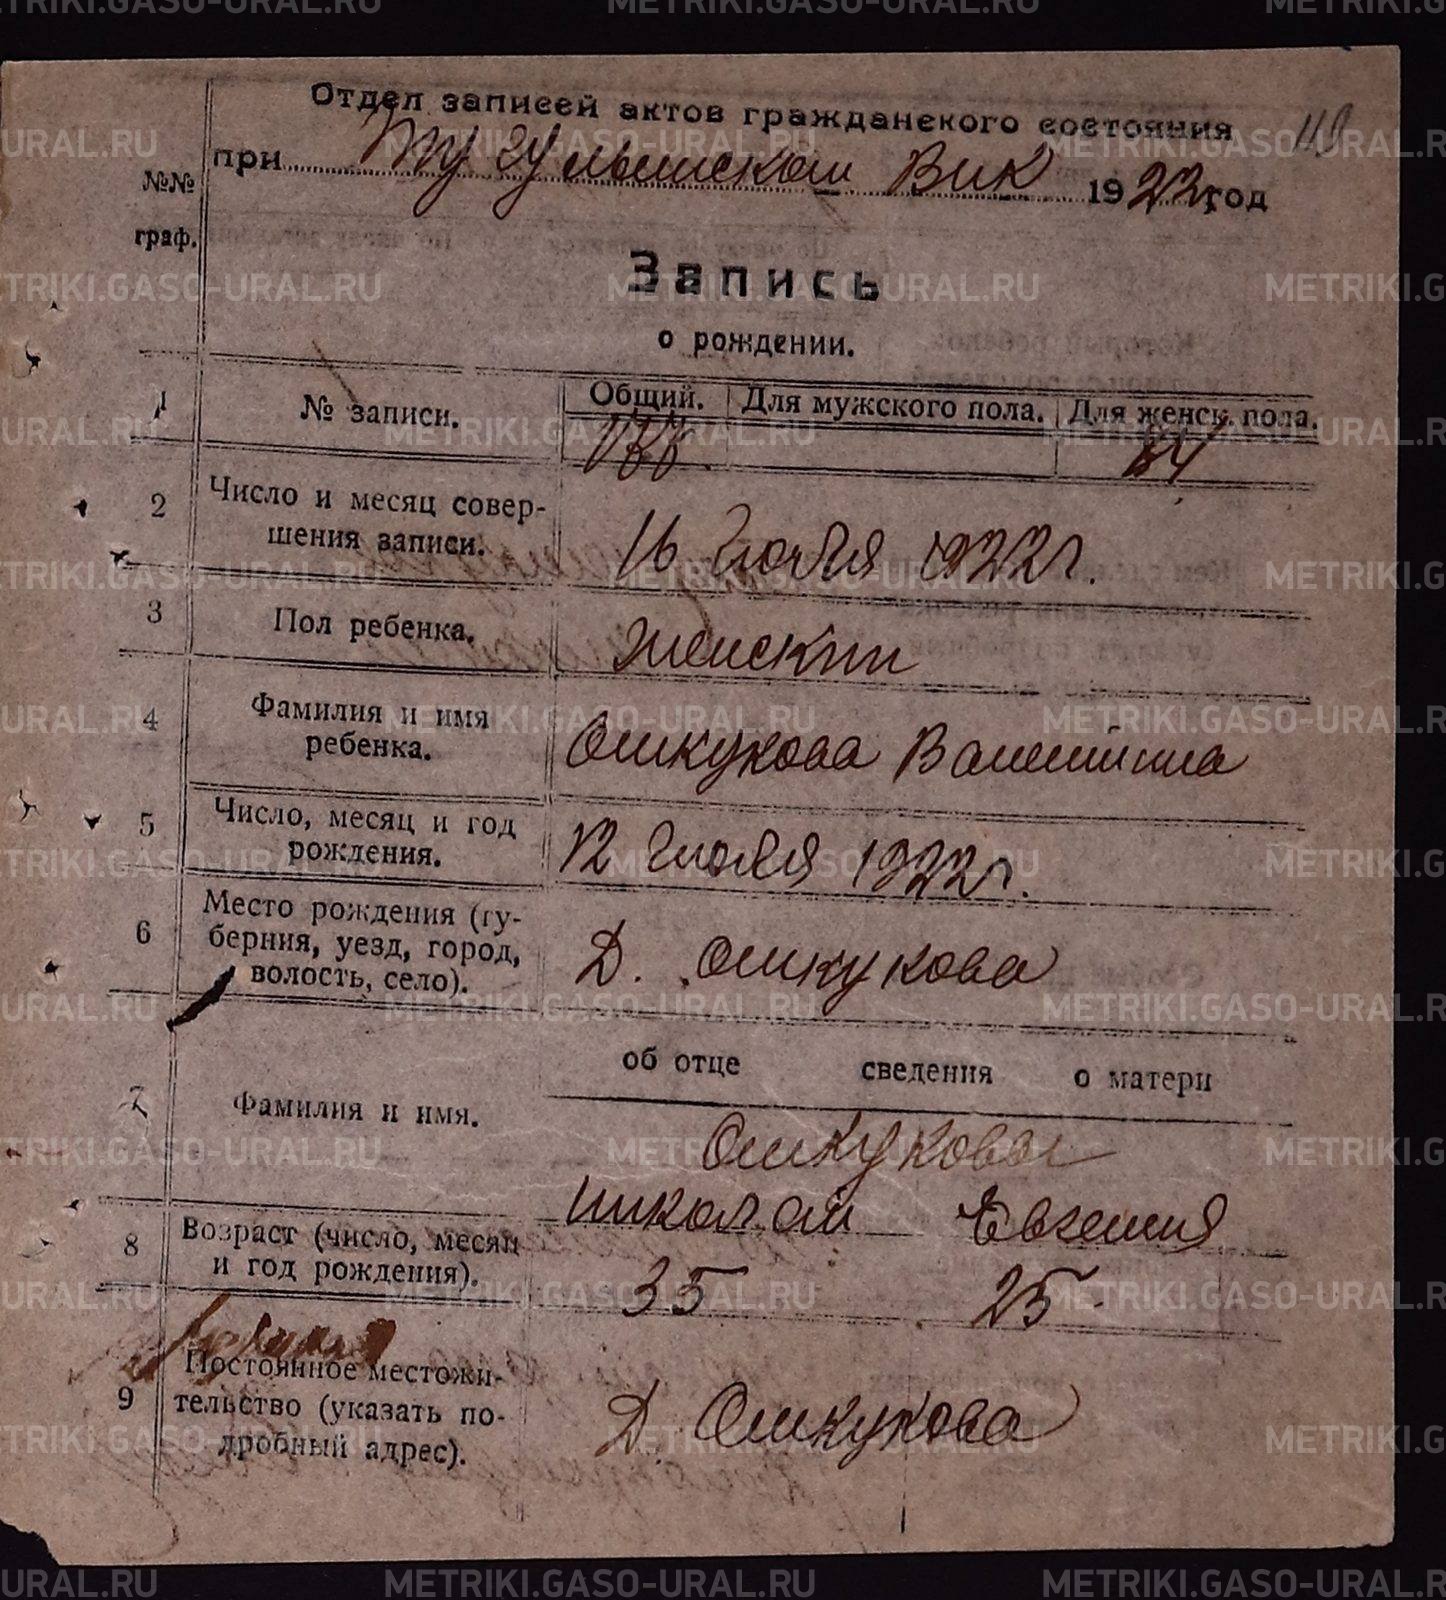 Отдел записей актов гражданского состояния
при Тугулымском Вик 1922 год
№№ граф.
Запись
о рождении.
1 № записи. Общий. Для мужского пола. Для женск. пола.
2 Число и месяц совершения записи. 16 Июля 1922 г.
3 Пол ребенка. Женский
4 Фамилия и имя ребенка. Ошкукова Валентина
5 Число, месяц и год рождения. 12 Июля 1922 г.
6 Место рождения (губерния, уезд, город, волость, село). Д. Ошкукова
об отце сведения о матери
7 Фамилия и имя. Ошкуковы
Николай Евгения
8 Возраст (число, месяц и год рождения). 35 25
9 Постоянное местожительство (указать подробный адрес). Д. Ошкукова
METRIKI.GASO-URAL.RU